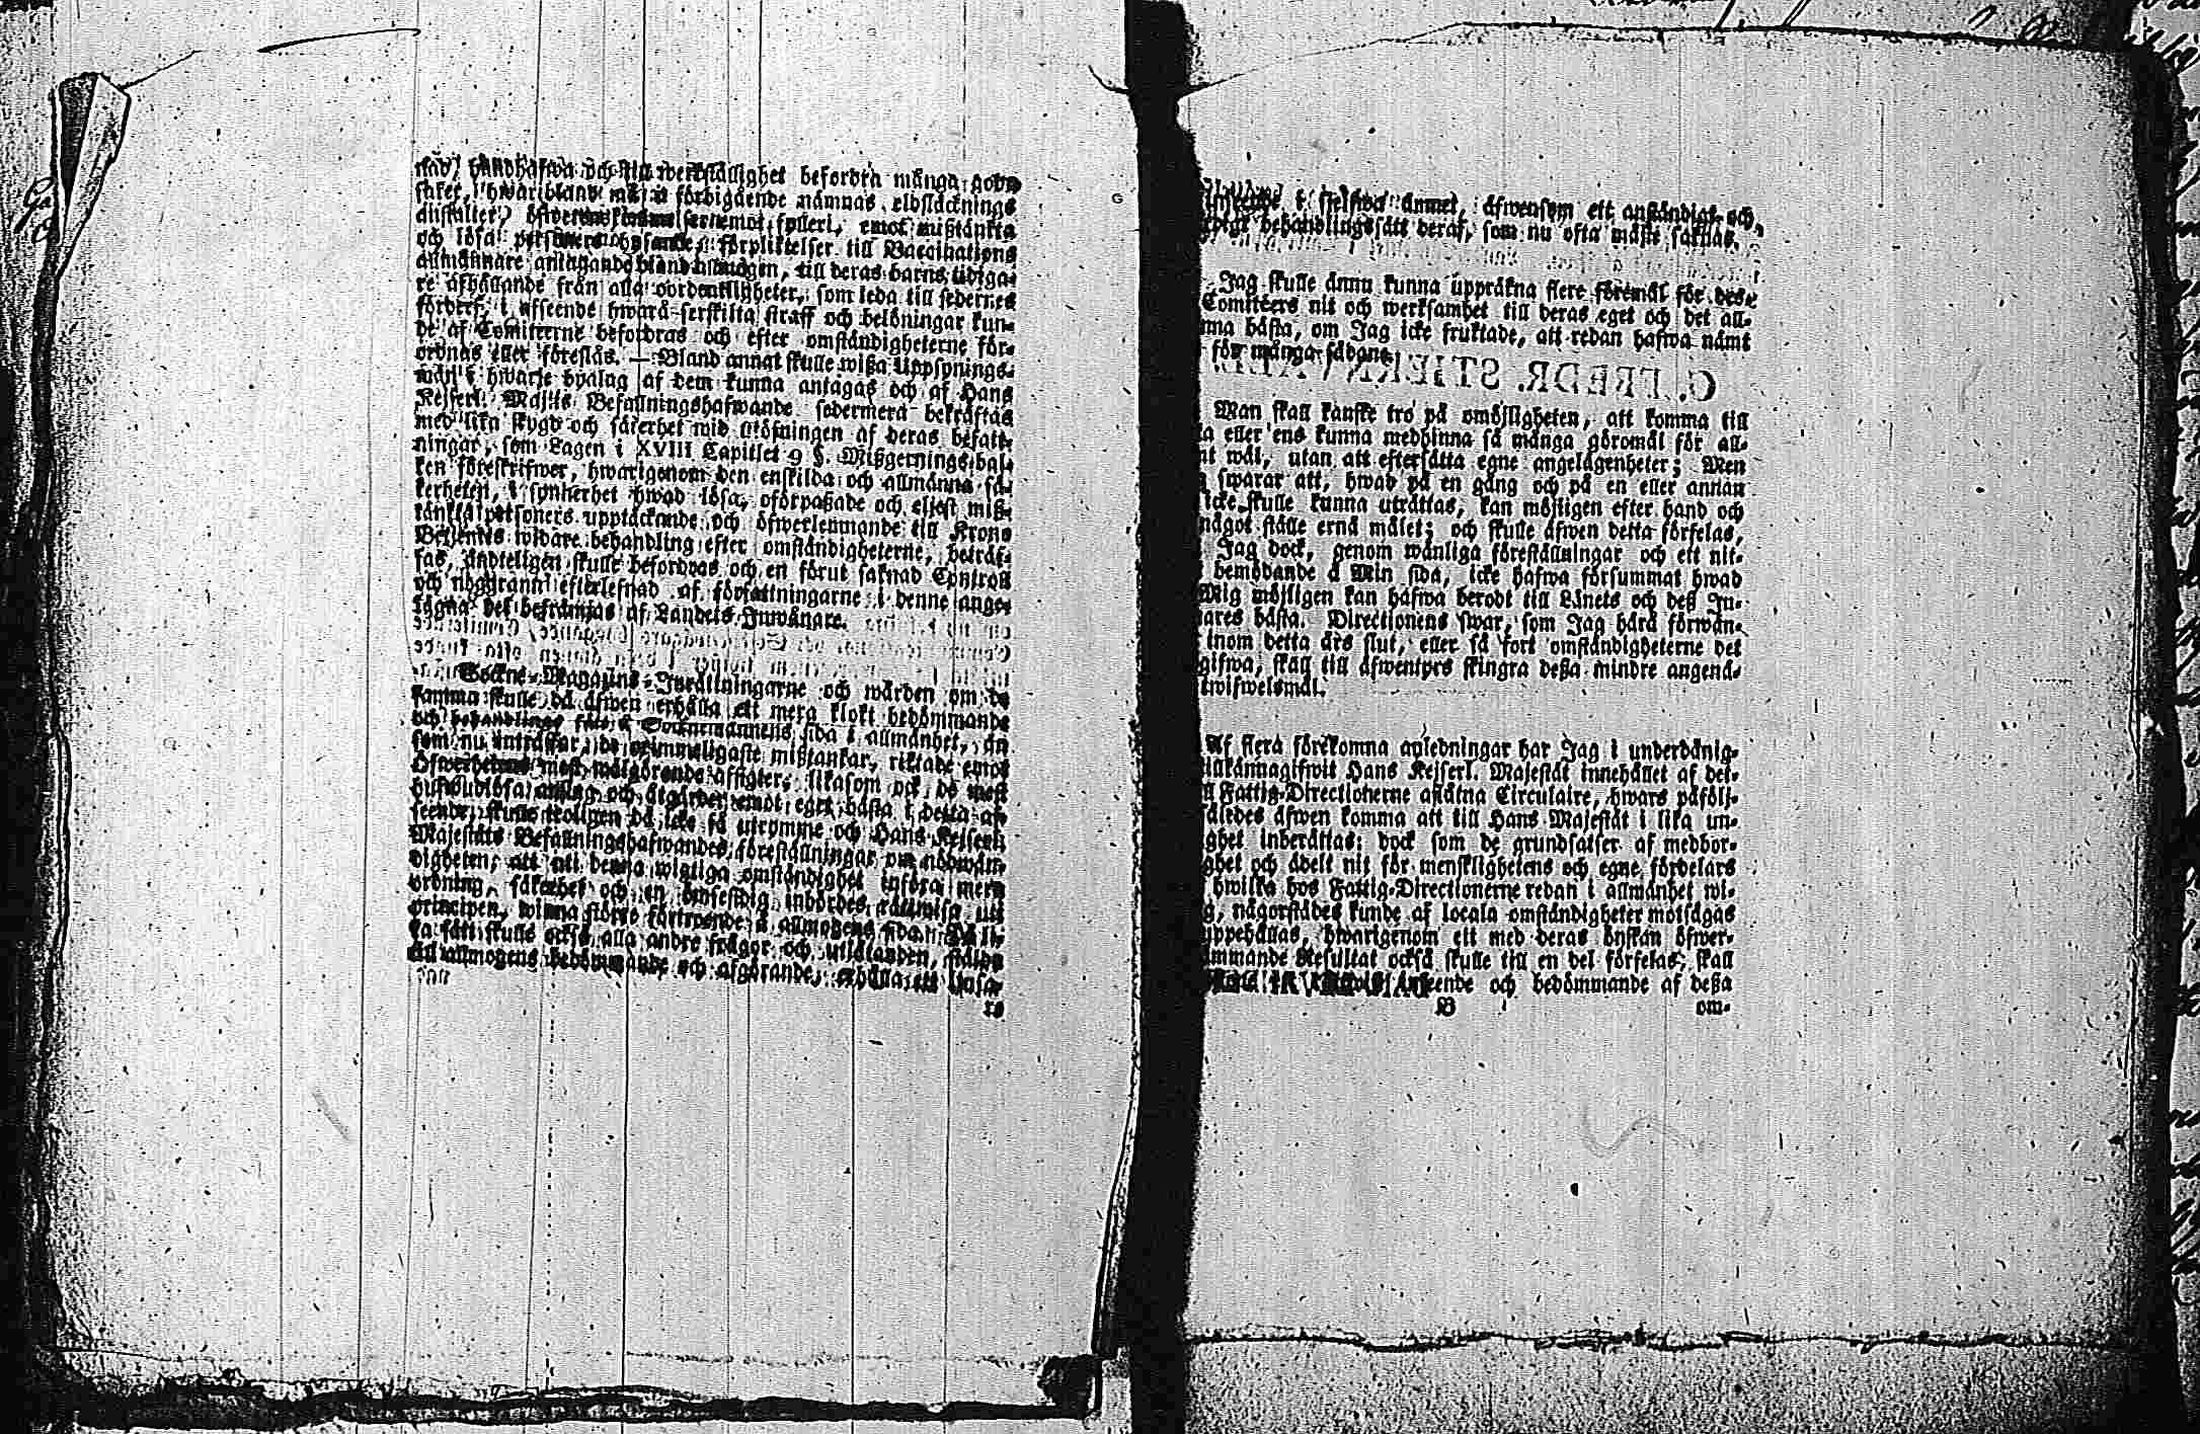 städ, handhafwa och till werkställighet befordra många goda
saker, hwaribland må i förbigående nämnas eldsläcknings
anstalter, emot fylleri, emot mißtänkta
och lösa personers förpliktelser till Vaccinations
allmännare antagande bland allmogen, till deras barns tidiga-
re afhållande från alla oordentligheter, som leda till sedernes
förderf, i afseende hwarå serskilta straff och belöningar kun-
de af Comiteerne befordras och efter omständigheterne för-
ordnas eller föreslås. — Bland annat skulle wißa Uppsynings-
män i hwarje byalag af dem kunna antagas och af Hans
Kejserl. Maj:ts Befallningshafwande sedermera bekräftas
med lika skygd och säkerhet wid utöfningen af deras befatt-
ningar, som Lagen i XVIII Capitlet 9 §. Mißgernings-bal-
ken föreskrifwer, hwarigenom den enskilda och allmänna sä-
kerheten, i synnerhet hwad lösa, oförpaßade och eljest miß-
tänkta personers upptäckande och öfwerlemnande till Krono
Betjentes widare behandling efter omständigheterne, beträf-
fas, ändteligen skulle befordras och en förut saknad Controll
och noggrann efterlefnad af författningarne i denne ange-
lägna del befrämjas af Landets Inwånare.
Sockne-Magazins-Inrättningarne och wården om de
samma skulle då äfwen erhålla ett mera klokt bedömmande
och behandlings sätt å Sockenemännens sida i allmänhet, än
som nu inträffar, då de orimmeligaste mißtankar, riktade emot
Öfwerhetens mest wälgörande affigter, likasom ock de mest
hufwudlösa anslag och åtgärder emot eget bästa i detta af-
seende, skulle troligen då icke få utrymme och Hans Kejserl.
Majestäts Befallningshafwandes föreställningar om nödwän-
digheten, att uti denna wigtiga omständighet införa mera
ordning, säkerhet och en ömsesidig inbördes rättwisa uti
principen, winna större förtroende å allmogens sida. På li-
ka sätt skulle också alla andre frågor och utlåtanden, ställde
till allmogens bedömmande och afgörande, erhålla ett
afseende i sjelfwa ämnet, äfwensom ett anständigt och
behandlingssätt deraf, som nu ofta måste saknas.
Jag skulle ännu kunna uppräkna flere föremål för des-
Comiteers nit och werksamhet till deras eget och det all-
nna bästa, om Jag icke fruktade, att redan hafwa nämt
för många sådane.
Man skall kanske tro på omöjligheten, att komma till
a eller ens kunna medhinna så många göromål för all-
nt wäl, utan att eftersätta egne angelägenheter; Men
swarar att, hwad på en gång och på en eller annan
icke skulle kunna uträttas, kan möjligen efter hand och
något ställe ernå målet; och skulle äfwen detta förfelas,
Jag dock, genom wänliga föreställningar och ett nit-
bemödande å Min sida, icke hafwa försummat hwad
Mig möjligen kan hafwa berodt till Länets och deß In-
ares bästa. Directionens swar, som Jag härå förwän-
inom detta års slut, eller så fort omständigheterne det
gifwa, skall till äfwentyrs skingra deßa mindre angenä-
twifwelsmål.
Af flera förekomna anledningar har Jag i underdånig-
tilkännagifwit Hans Kejserl. Majestät innehållet af det-
ll Fattig-Directionerne aflåtna Circulaire, hwars påfölj-
äledes äfwen komma att till Hans Majestät i lika un-
ghet inberättas: dock som de grundsatser af medbor-
ghet och ädelt nit för mensklighetens och egne fördelars
hwilka hos Fattig-Directionerne redan i allmänhet wi-
g, någorstädes kunde af locala omständigheter motsägas
uppehållas, hwarigenom ett med deras önskan öfwer-
ämmande Resultat också skulle till en del förfelas, skall
seende och bedömmande af deßa
B om-